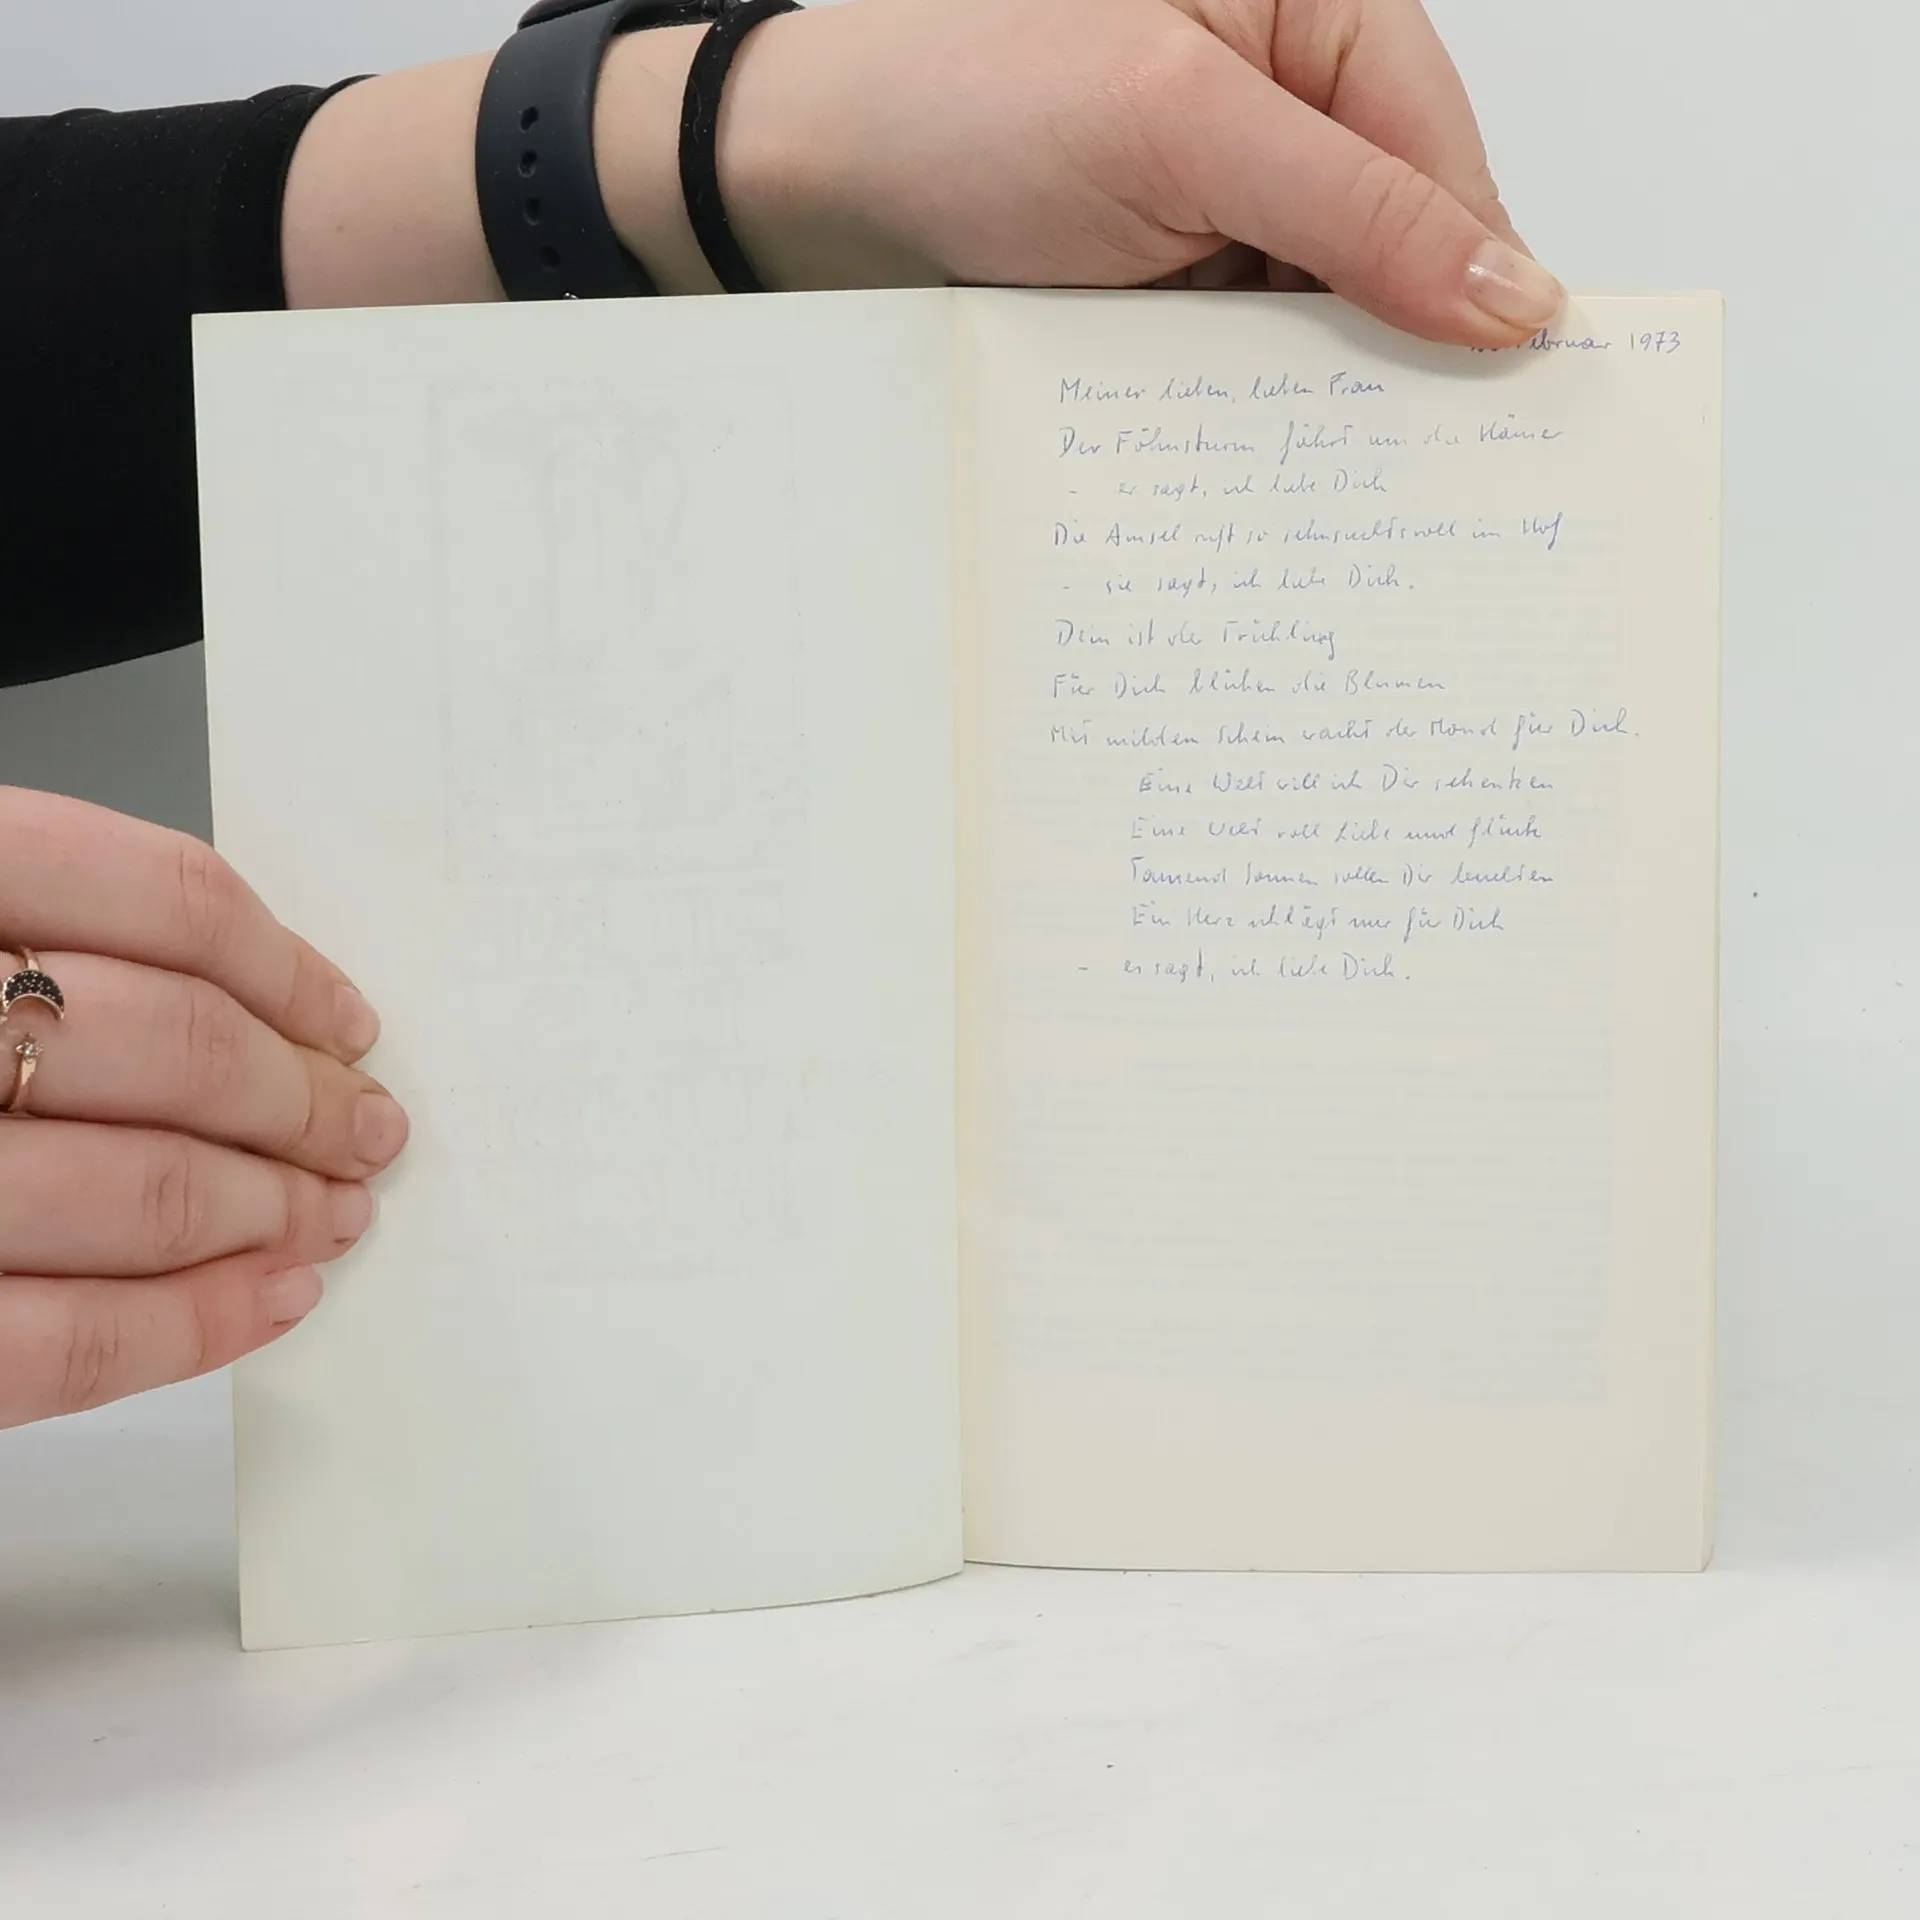 Februar 1973
Meiner lieben, lieben Frau
Der Föhnsturm fährt um die Häuser
- er sagt, ich liebe Dich
Die Amsel ruft so sehnsuchtsvoll im Hof
- sie sagt, ich liebe Dich.
Dein ist der Frühling
Für Dich blühen die Blumen
Mit mildem Schein wacht der Mond für Dich.
Eine Welt will ich Dir schenken
Eine Welt voll Liebe und Glück
Tausend Sonnen sollen Dir leuchten
Ein Herz schlägt nur für Dich
- es sagt, ich liebe Dich.